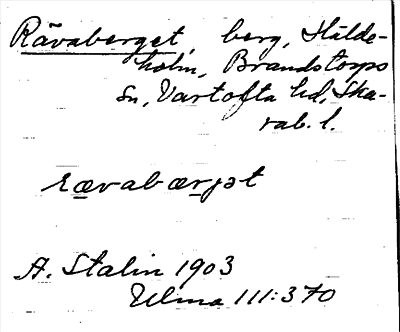 Rävaberget, berg, Hålde-
holm, Brandstorps
sn, Vartofta hd, Ska-
rab. l.
rævabærjət
A. Stalin 1903
Ulma 111:370